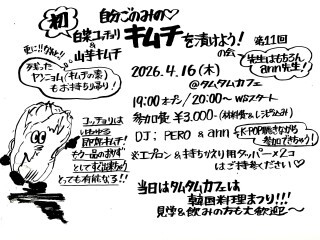 自分ごのみの♡
初 白菜コッチョリ & 山芋キムチ
キムチを漬けよう!の会 第11回
先生はもちろんann先生!
更に!!なんと!!
残ったヤンニョム(キムチの素)もお持ちち帰り!
2026.4.16(木)
@タムタムカフェ
19:00オープン/20:00~WSスタート
参加費¥3,000-(材料費&レシピ込み)
DJ; PERO & ann
K-POP聴きながら参加できちゃう!
※エプロン&持ちかえり用タッパー×2コはご持参ください♡
コッチョリはいわゆる即席キムチ!
もう一品のおかずとしてすぐ出来ちゃうとっても有能なる!!
当日はタムタムカフェは
韓国料理まつり!!!
見学&飲みの方も大歓迎~